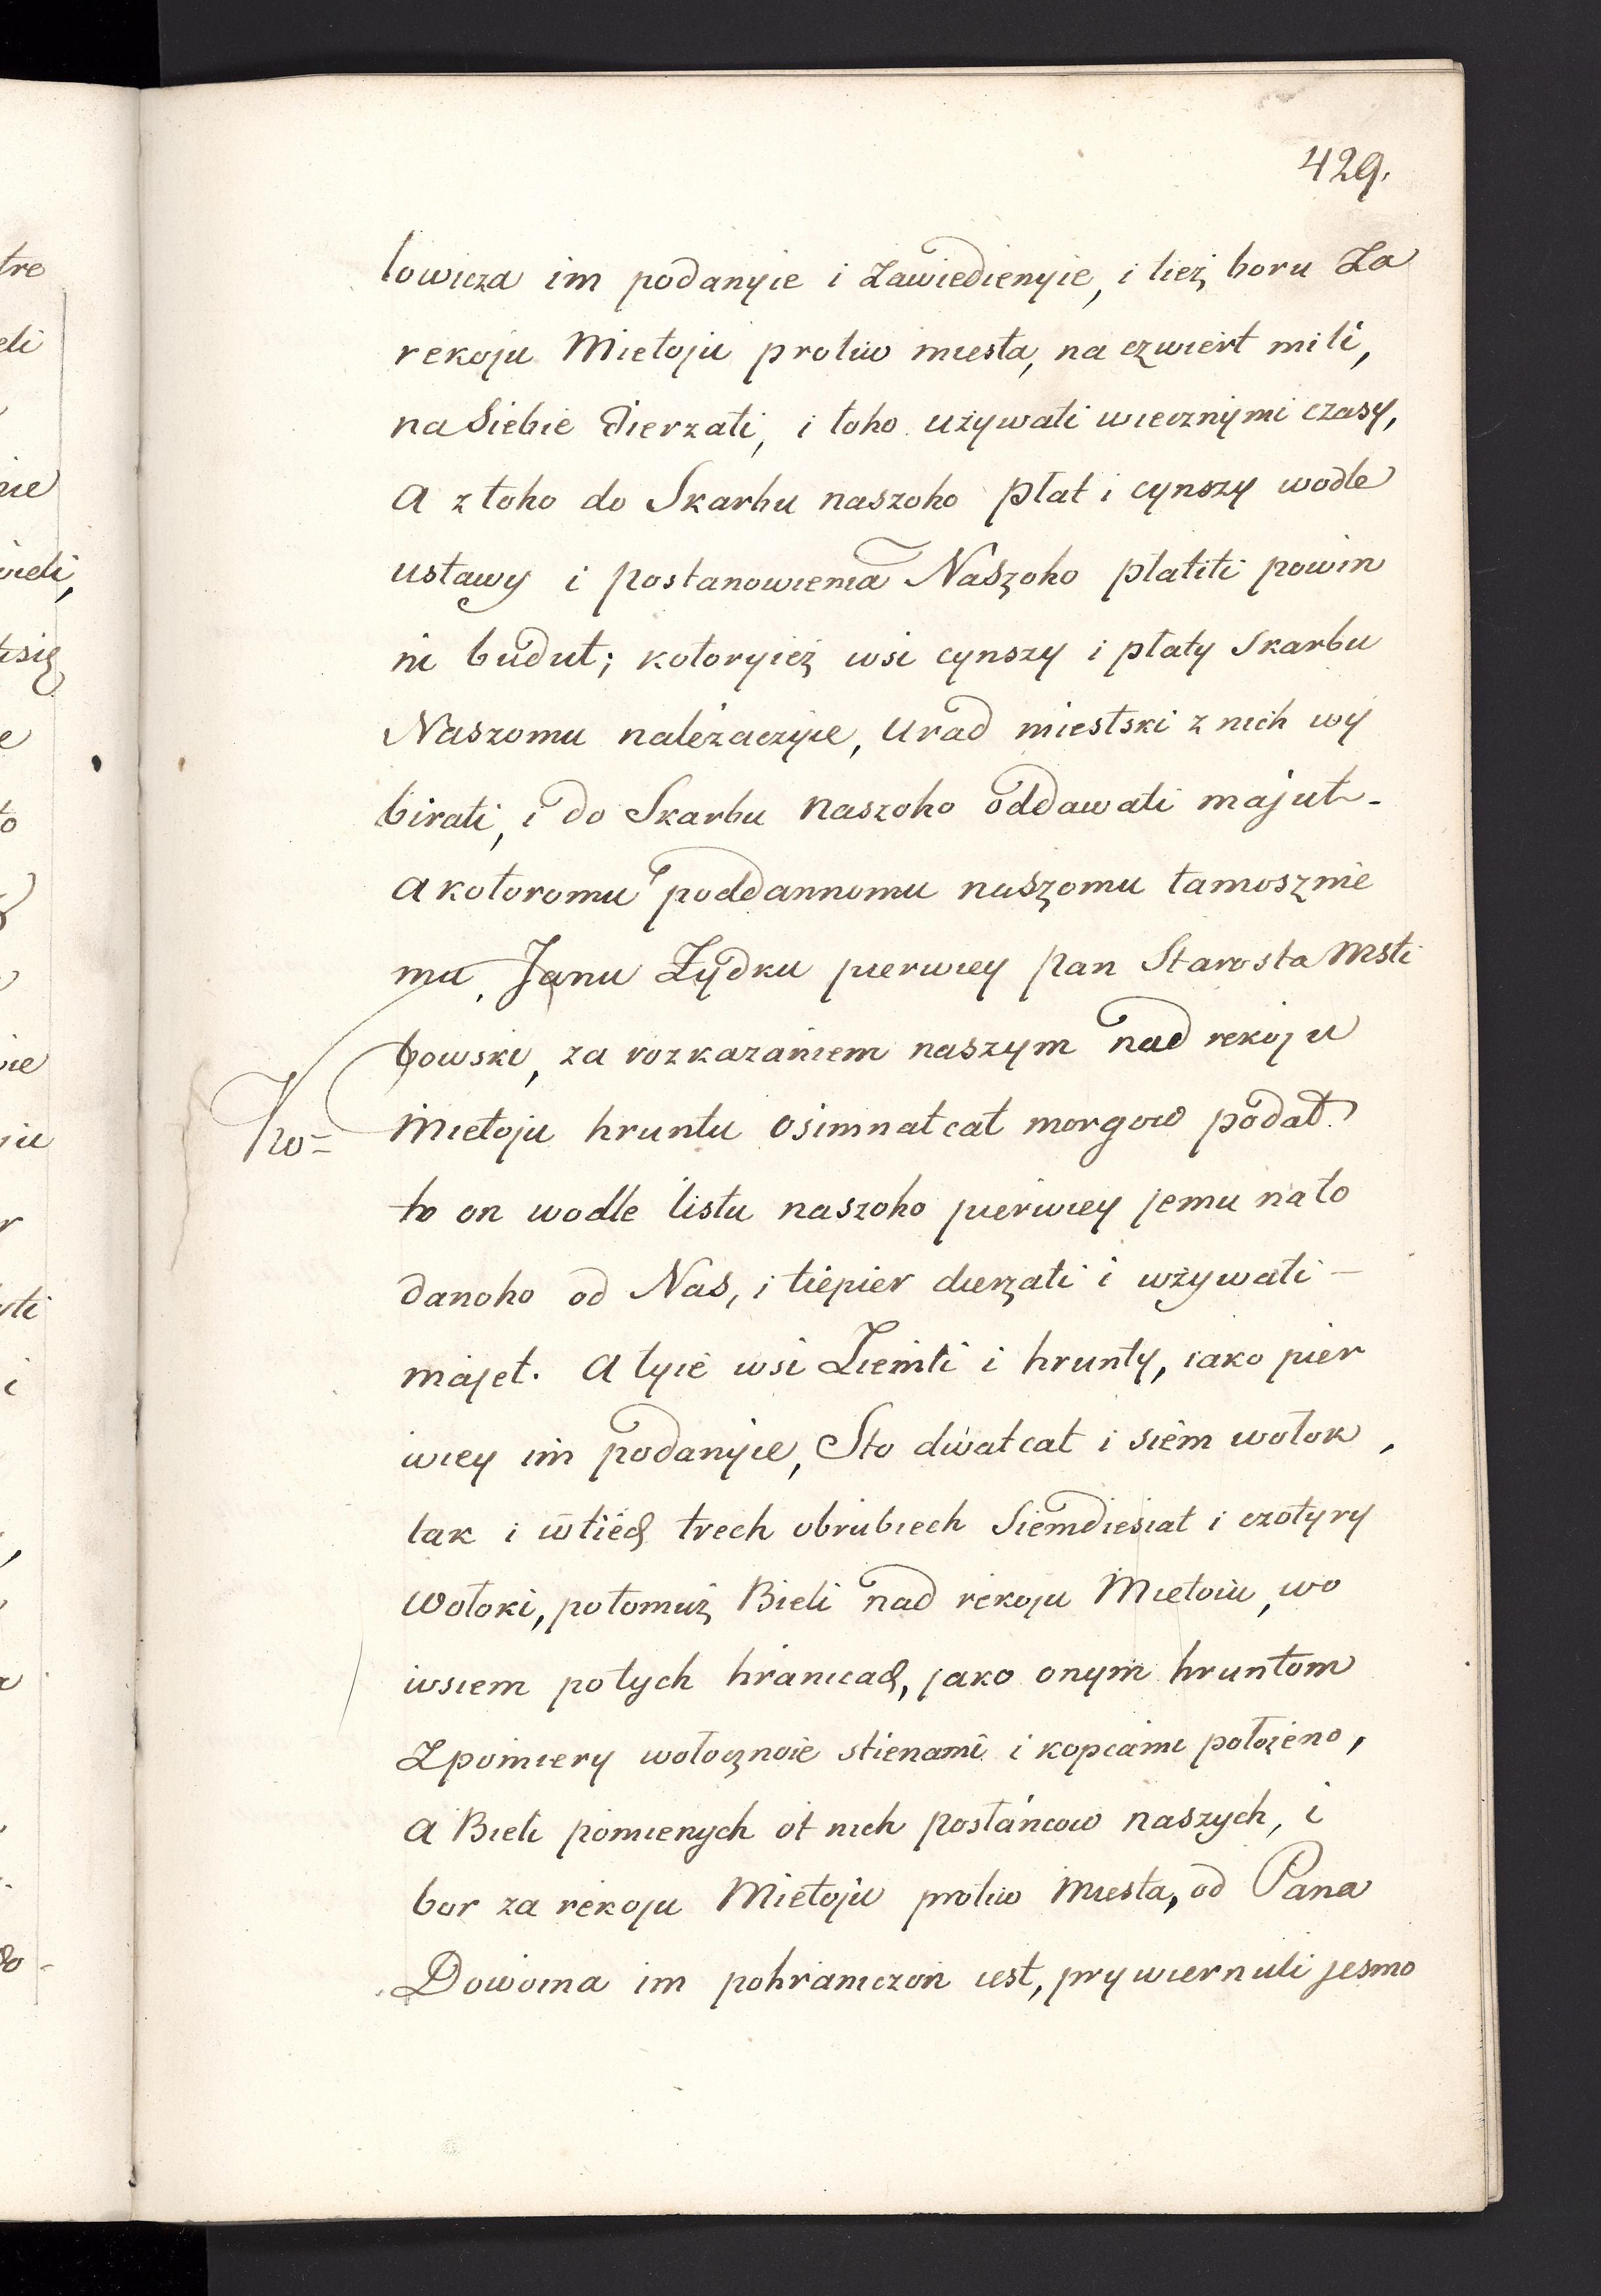 429.
lowicza im podanyie i Zawiedienyie, i tież boru Za
rekoju Mietoju protiw miesta, na czwiert mili,
na Siebie dierzati, i toho używati wiecznymi czasy,
a z toho do Skarbu naszoho płat i cynszy wodle
ustawy i postanowienia Naszoho płatiti powin
ni budut; kotoryież wsi cynszy i płaty Skarbu
Naszomu należaczyie, Urad miestski z nich wy
birati, i do Skarbu naszoho oddawati majut-
a kotoromu poddannomu naszomu tamosznie
mu, Janu Żydku pierwiey pan Starosta Msti
bowski, za rozkazaniem naszym nad rekoju
Ko= Mietoju hruntu Osimnatcat morgow podał
to on wodle listu naszoho pierwiey jemu na to
danoho od Nas, i tiepier dierżati i używati -
majet. A tyie wsi Ziemli i hrunty, iako pier
wiey im podanyie, Sto dwatcat i siem wołok,
tak i w tiech trech obrubiech Siemdiesiat i czotyry
Wołoki, potomuż Bieli nad rekoju Mietoiu, wo
wsiem po tych hranicach, jako onym hruntom
Z pomiery wołocznoie stienami i kopcami położeno,
a Bieli pomienych ot nich posłańcow naszych, i
bor za rekoju Mietoju protiw Miesta, od Pana
Dowoina im pohraniczon iest, prywiernuli jesmo
tre
eli
nie
wieli,
tsię
e
to
nie
ju
r
yti
i